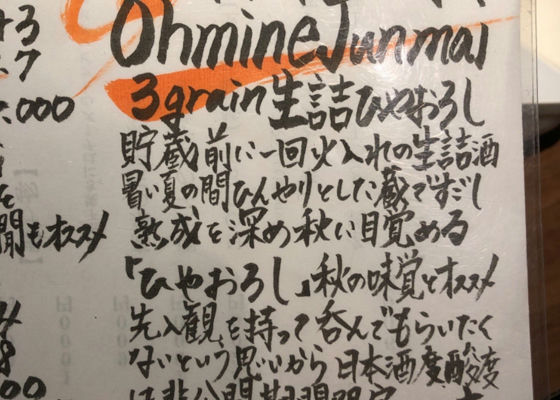 Ohmine Junmai
3grain 生詰ひやおろし
貯蔵前に一回火入れの生詰酒
暑い夏の間ひんやりとした蔵ですごし
熟成を深め秋に目覚める
「ひやおろし」秋の味覚とオススメ
先入観を持って呑んでもらいたく
ないという思いから日本酒度酸度
は非公開期間限定
+3
7
,000
間もオススメ
8
00